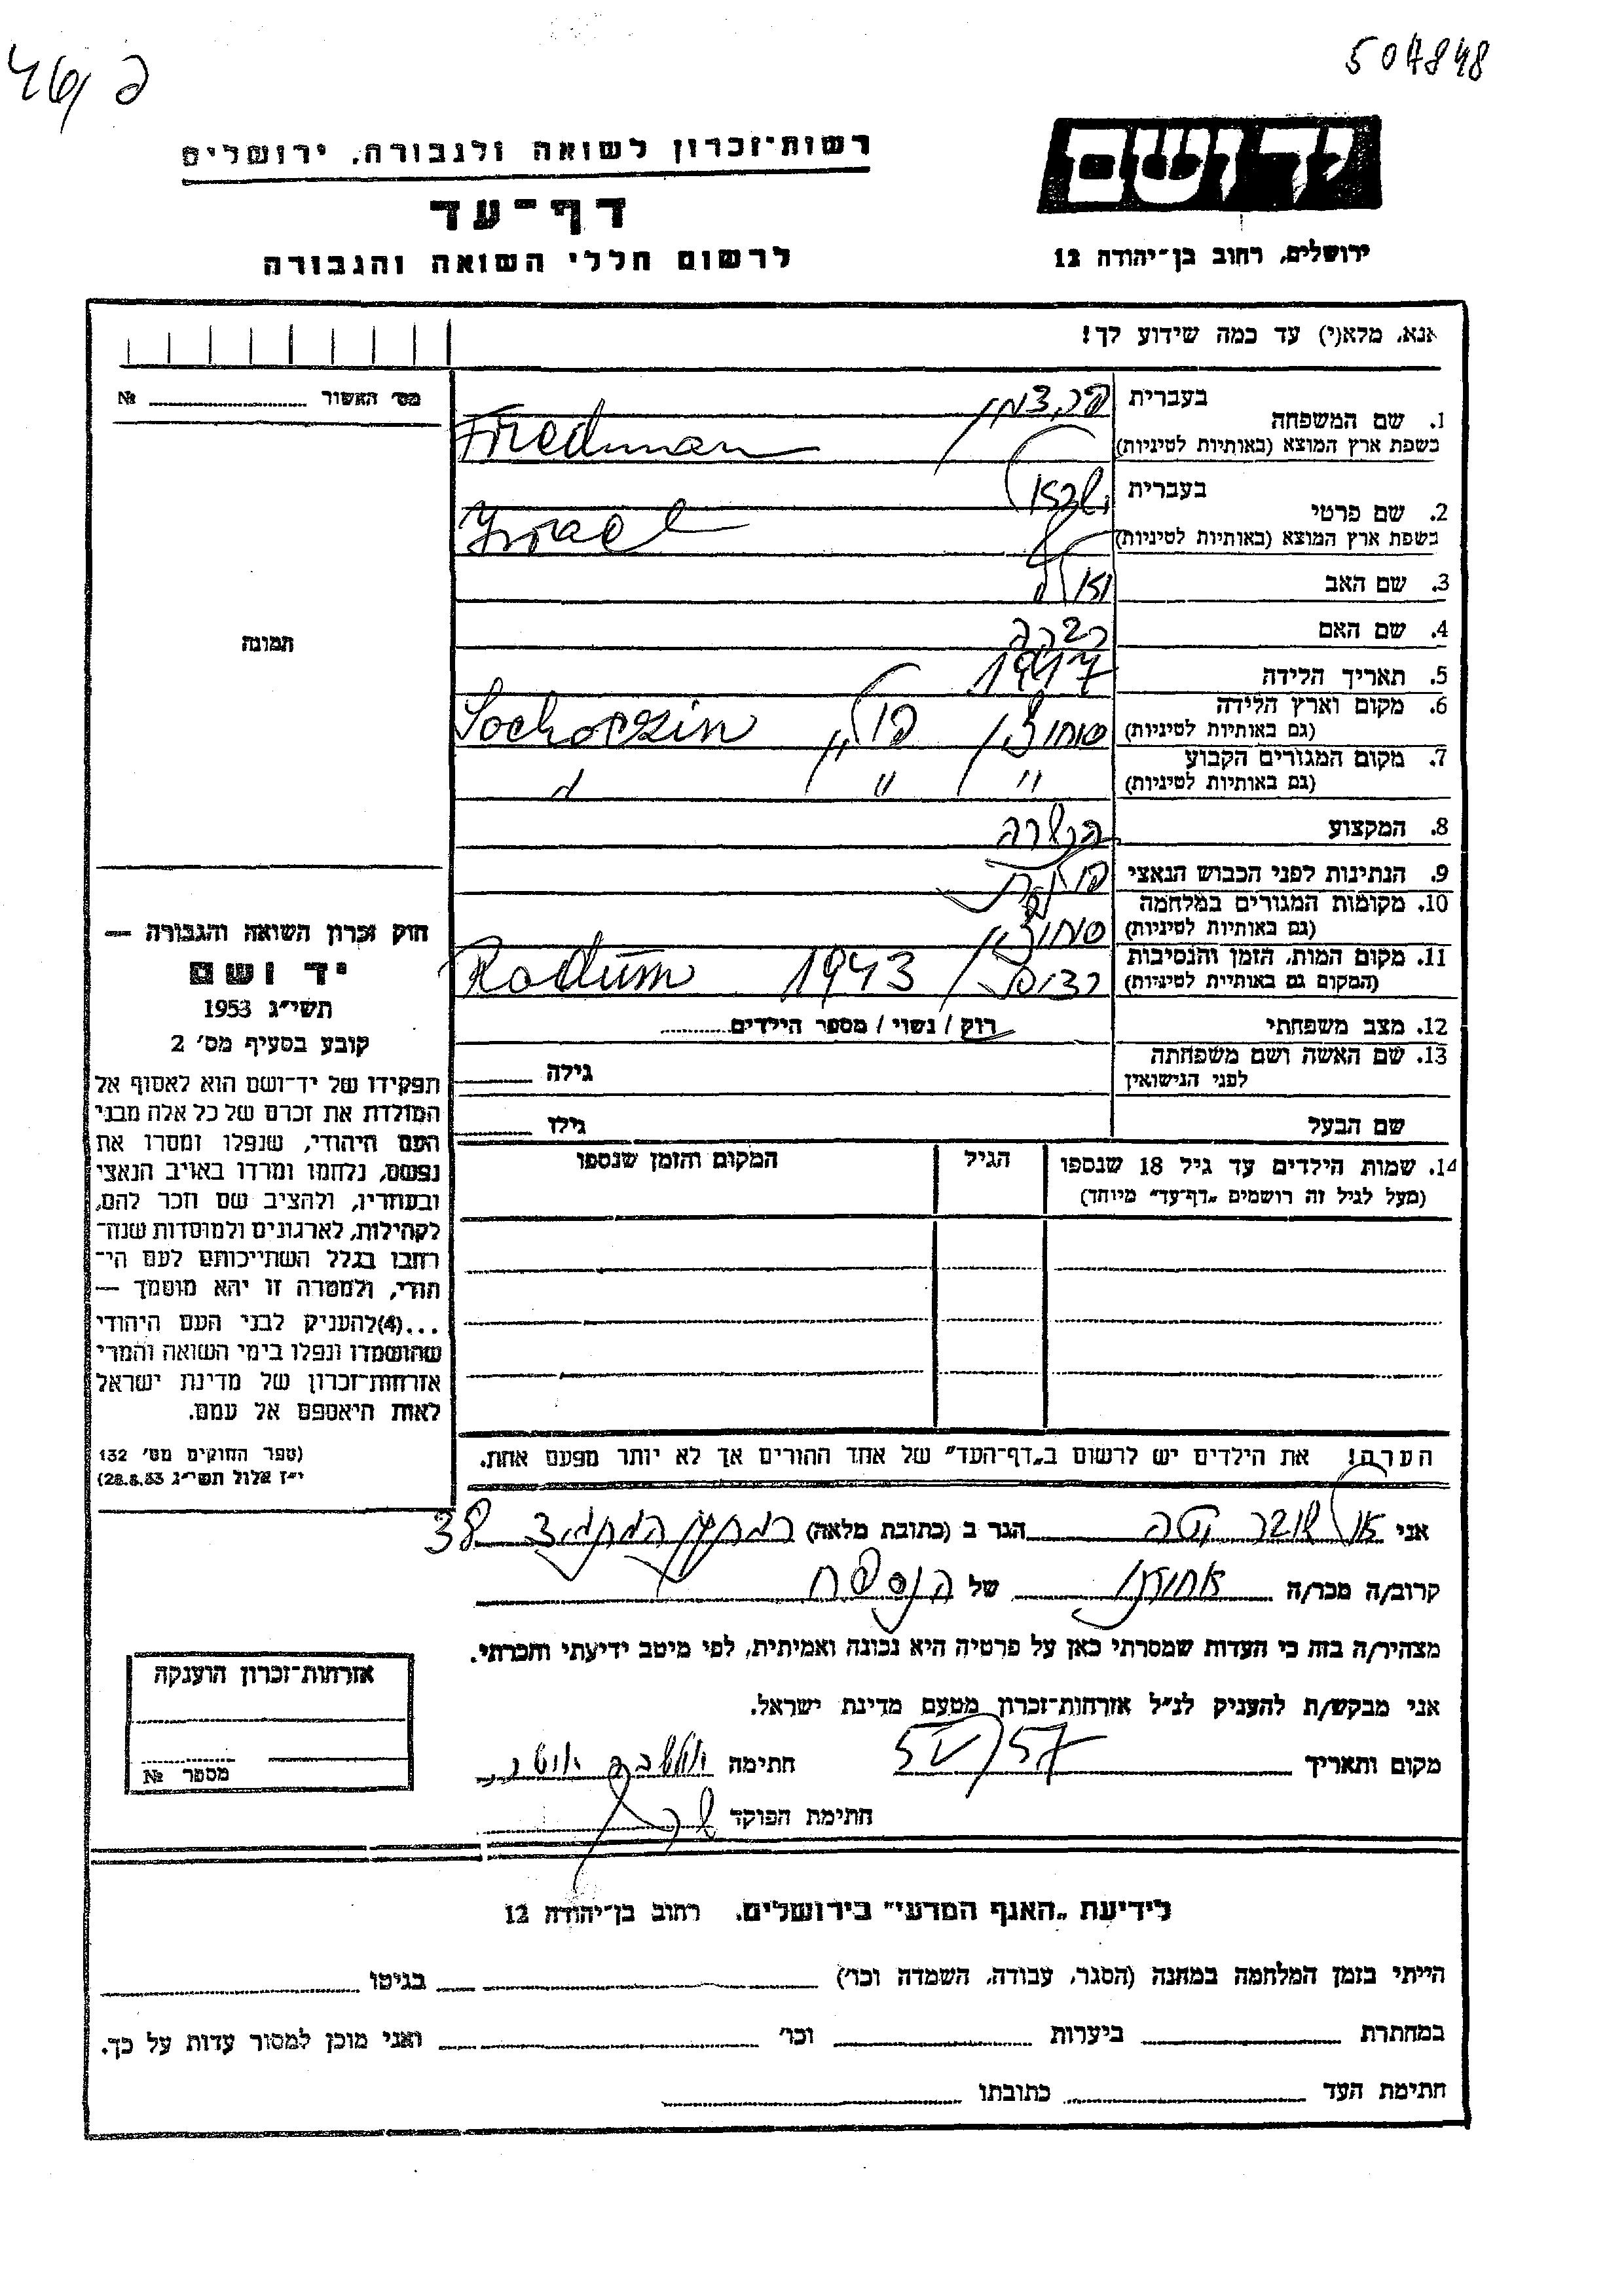 504848
יד ושם
רשות־זכרון לשואה ולגבורה, ירושלים
דף־עד
לרשום חללי השואה והגבורה
ירושלים, רחוב בן־יהודה 12
אנא, מלא(י) עד כמה שידוע לך!
מס׳ האשור № 
1. שם המשפחה בעברית
בשפת ארץ המוצא (באותיות לטיניות) Friedman
2. שם פרטי בעברית ישראל
בשפת ארץ המוצא (באותיות לטיניות) Israel
3. שם האב
4. שם האם רבקה
5. תאריך הלידה 1917
6. מקום וארץ הלידה
(גם באותיות לטיניות) פולין Sochoczin
7. מקום המגורים הקבוע
(גם באותיות לטיניות) " "
8. המקצוע
9. הנתינות לפני הכבוש הנאצי פולנית
10. מקומות המגורים במלחמה
(גם באותיות לטיניות)
11. מקום המות, הזמן והנסיבות
(המקום גם באותיות לטיניות) 1943 Radum
12. מצב משפחתי רוק / נשוי / מספר הילדים
13. שם האשה ושם משפחתה
לפני הנישואין גילה
שם הבעל גילו
14. שמות הילדים עד גיל 18 שנספו
(מעל לגיל זה רושמים „דף־עד״ מיוחד)
הגיל
המקום והזמן שנספו
הערה! את הילדים יש לרשום ב„דף־העד״ של אחד ההורים אך לא יותר מפעם אחת.
תמונה
חוק זכרון השואה והגבורה —
יד ושם
תשי״ג 1953
קובע בסעיף מס׳ 2
תפקידו של יד־ושם הוא לאסוף אל
המולדת את זכרם של כל אלה מבני
העם היהודי, שנפלו ומסרו את
נפשם, נלחמו ומרדו באויב הנאצי
ובעוזריו, ולהציב שם וזכר להם,
לקהילות, לארגונים ולמוסדות שנח־
רבו בגלל השתייכותם לעם הי־
הודי, ולמטרה זו יהא מוסמך —
...(4)להעניק לבני העם היהודי
שהושמדו ונפלו בימי השואה והמרי
אזרחות־זכרון של מדינת ישראל
לאות היאספם אל עמם.
(ספר החוקים מס׳ 132
י״ז אלול תשי״ג 28.8.53)
אני הגר ב (כתובת מלאה) 38
קרוב/ה מכר/ה של הנספה
מצהיר/ה בזה כי העדות שמסרתי כאן על פרטיה היא נכונה ואמיתית, לפי מיטב ידיעתי והכרתי.
אני מבקש/ת להעניק לנ״ל אזרחות־זכרון מטעם מדינת ישראל.
מקום ותאריך חתימה
חתימת הפוקד
אזרחות־זכרון הוענקה
מספר №
לידיעת „האגף המדעי״ בירושלים. רחוב בן־יהודה 12
הייתי בזמן המלחמה במחנה (הסגר, עבודה, השמדה וכו׳) בגיטו
במחתרת ביערות וכו׳ ואני מוכן למסור עדות על כך.
חתימת העד כתובתו